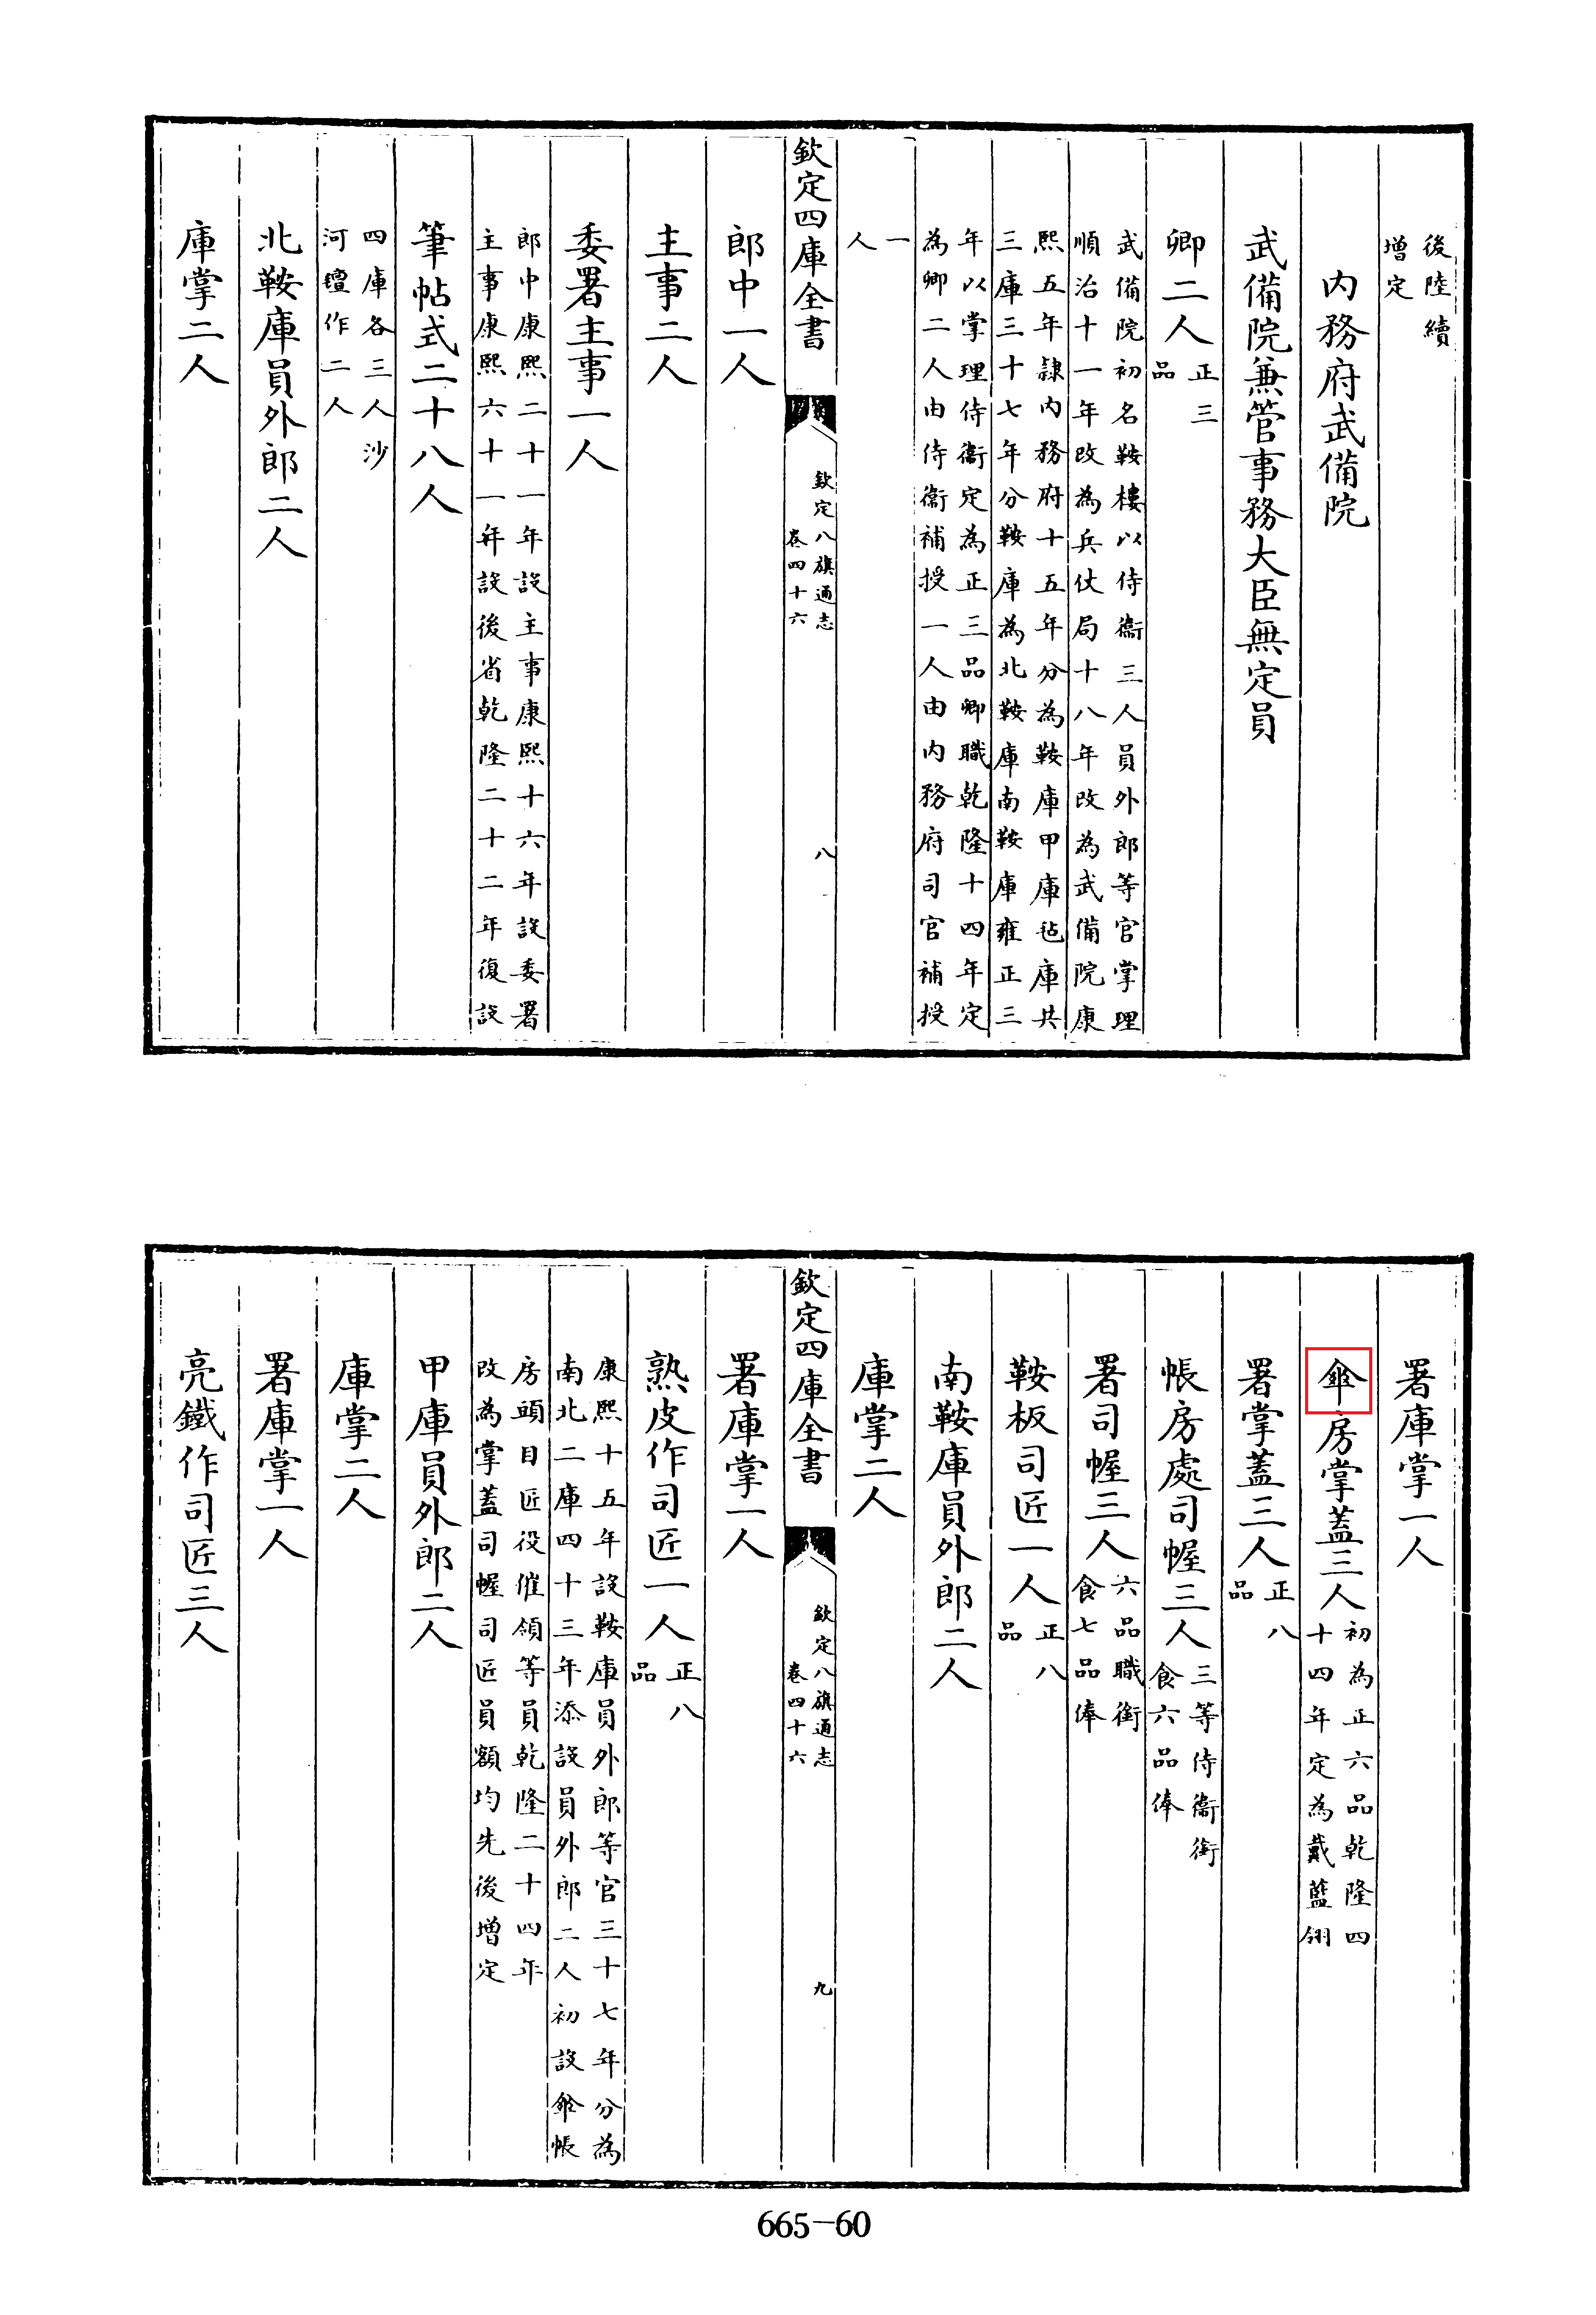 後陸續
增定
内務府武備院
武備院兼管事務大臣無定員
卿二人正三
品
武備院初名鞍樓以侍衞三人員外郎等官掌理
順治十一年改為兵仗局十八年改為武備院康
熙五年隷内務府十五年分為鞍庫甲庫毡庫共
三庫三十七年分鞍庫為北鞍庫南鞍庫雍正三
年以掌理侍衞定為正三品卿職乾隆十四年定
為卿二人由侍衞補授一人由内務府司官補授
一
人
欽定四庫全書
欽定八旗通志
卷四十六
八
郎中一人
主事二人
委署主事一人
郎中康熙二十一年設主事康熙十六年設委署
主事康熙六十一年設後省乾隆二十二年復設
筆帖式二十八人
四庫各三人沙
河氊作二人
北鞍庫員外郎二人
庫掌二人
署庫掌一人
傘房掌蓋三人初為正六品乾隆四
十四年定為戴藍翎
署掌蓋三人正八
品
帳房處司幄三人三等侍衞銜
食六品俸
署司幄三人六品職銜
食七品俸
鞍板司匠一人正八
品
南鞍庫員外郎二人
庫掌二人
欽定四庫全書
欽定八旗通志
卷四十六
九
署庫掌一人
熟皮作司匠一人正八
品
康熙十五年設鞍庫員外郎等官三十七年分為
南北二庫四十三年添設員外郎二人初設傘帳
房頭目匠役催領等員乾隆二十四年
改為掌蓋司幄司匠員額均先後增定
甲庫員外郎二人
庫掌二人
署庫掌一人
亮鐵作司匠三人
665-60